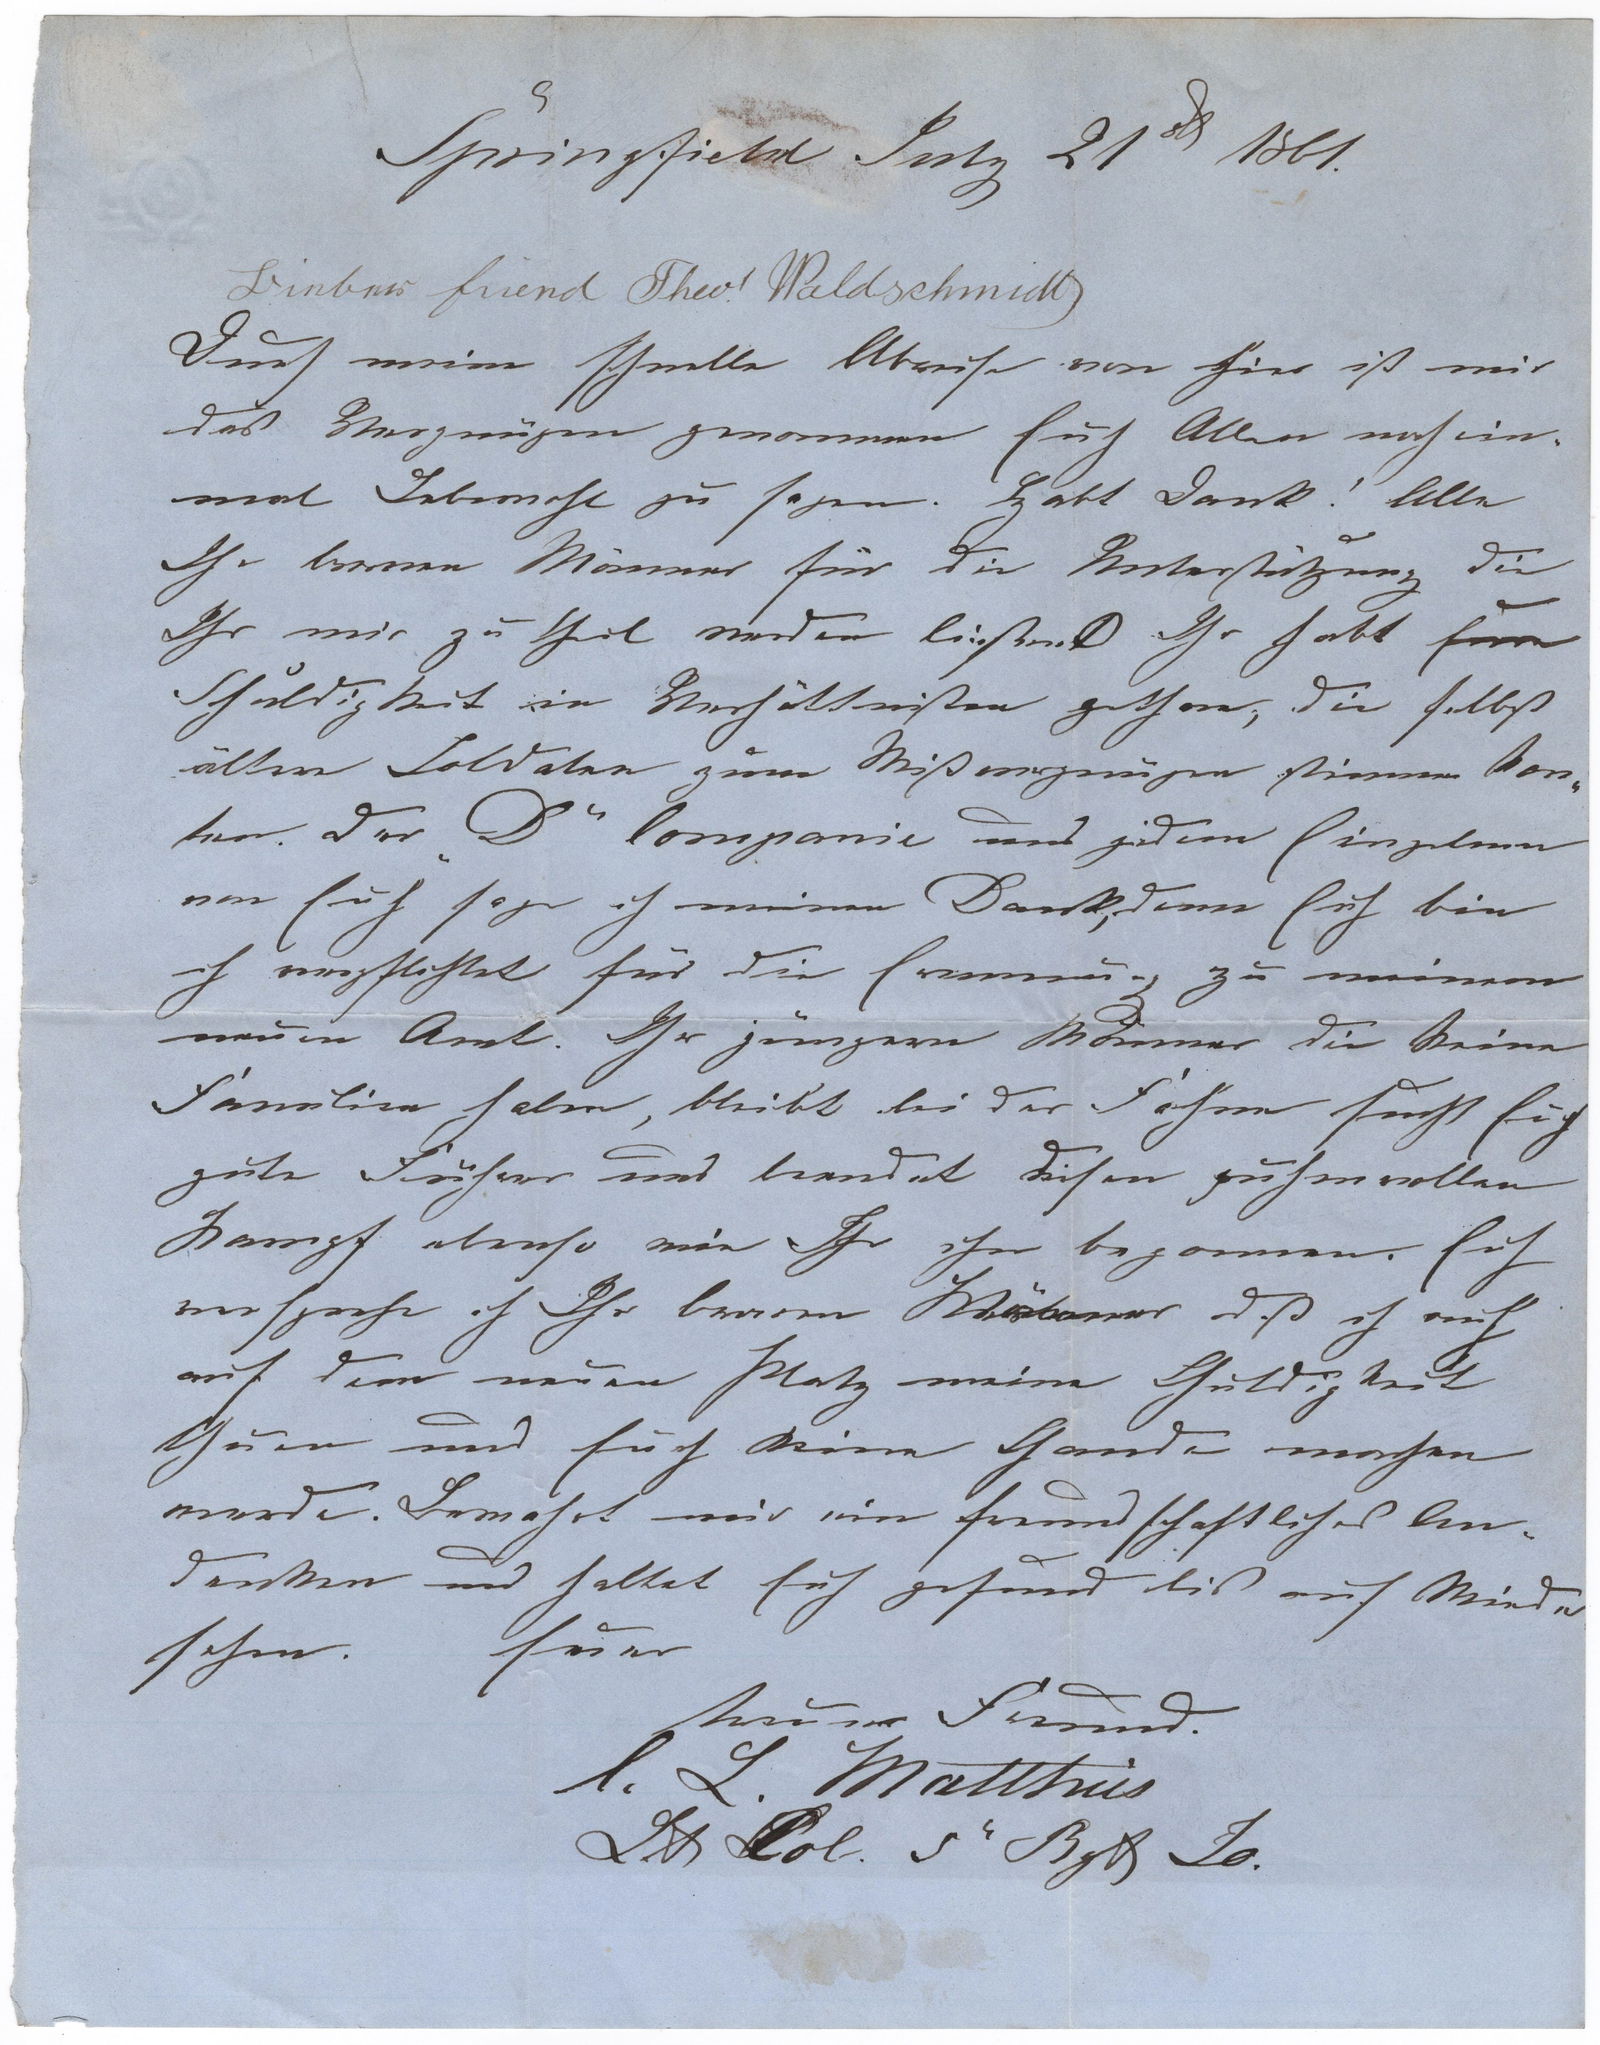 Springfield July 21st 1861.
Lieber friend Theo! Waldschmidt
Durch meine schnelle Abreise von hier ist mir
das Vergnügen genommen Euch Allen noch ein-
mal Lebewohl zu sagen. Habt Dank! Alle
Ihr braven Männer für die Unterstützung die
Ihr mir zu theil werden ließend Ihr habt Eure
Schuldigkeit in Verhältnißen gethan, die selbst
ältere Soldaten zum Mißvergnügen stimmen kon„
ten. Der „D“ Companie und jedem Einzelnen
von Euch sage ich meinen Dank, denn Euch bin
ich verpflichtet für die Ernennung zu meinem
neuen Amt. Ihr jüngern Männer die keine
Familien haben, bleibt bei der Fahne sucht Euch
gute Führer und beendet diesen ruhmvollen
Kampf ebenso wie Ihr ihn begonnen. Euch
verspreche ich Ihr braven Männer daß ich auch
auf dem neuen Platz meine Schuldigkeit
thuen und Euch keine Schande machen
werde. Bewahrt mir ein freundschaftliches An-
denken und haltet Euch gesund bis auf Wieder
sehen. Euer
treuer Freund.
C. L. Matthies
Lt Col. 5" Rgt Io.